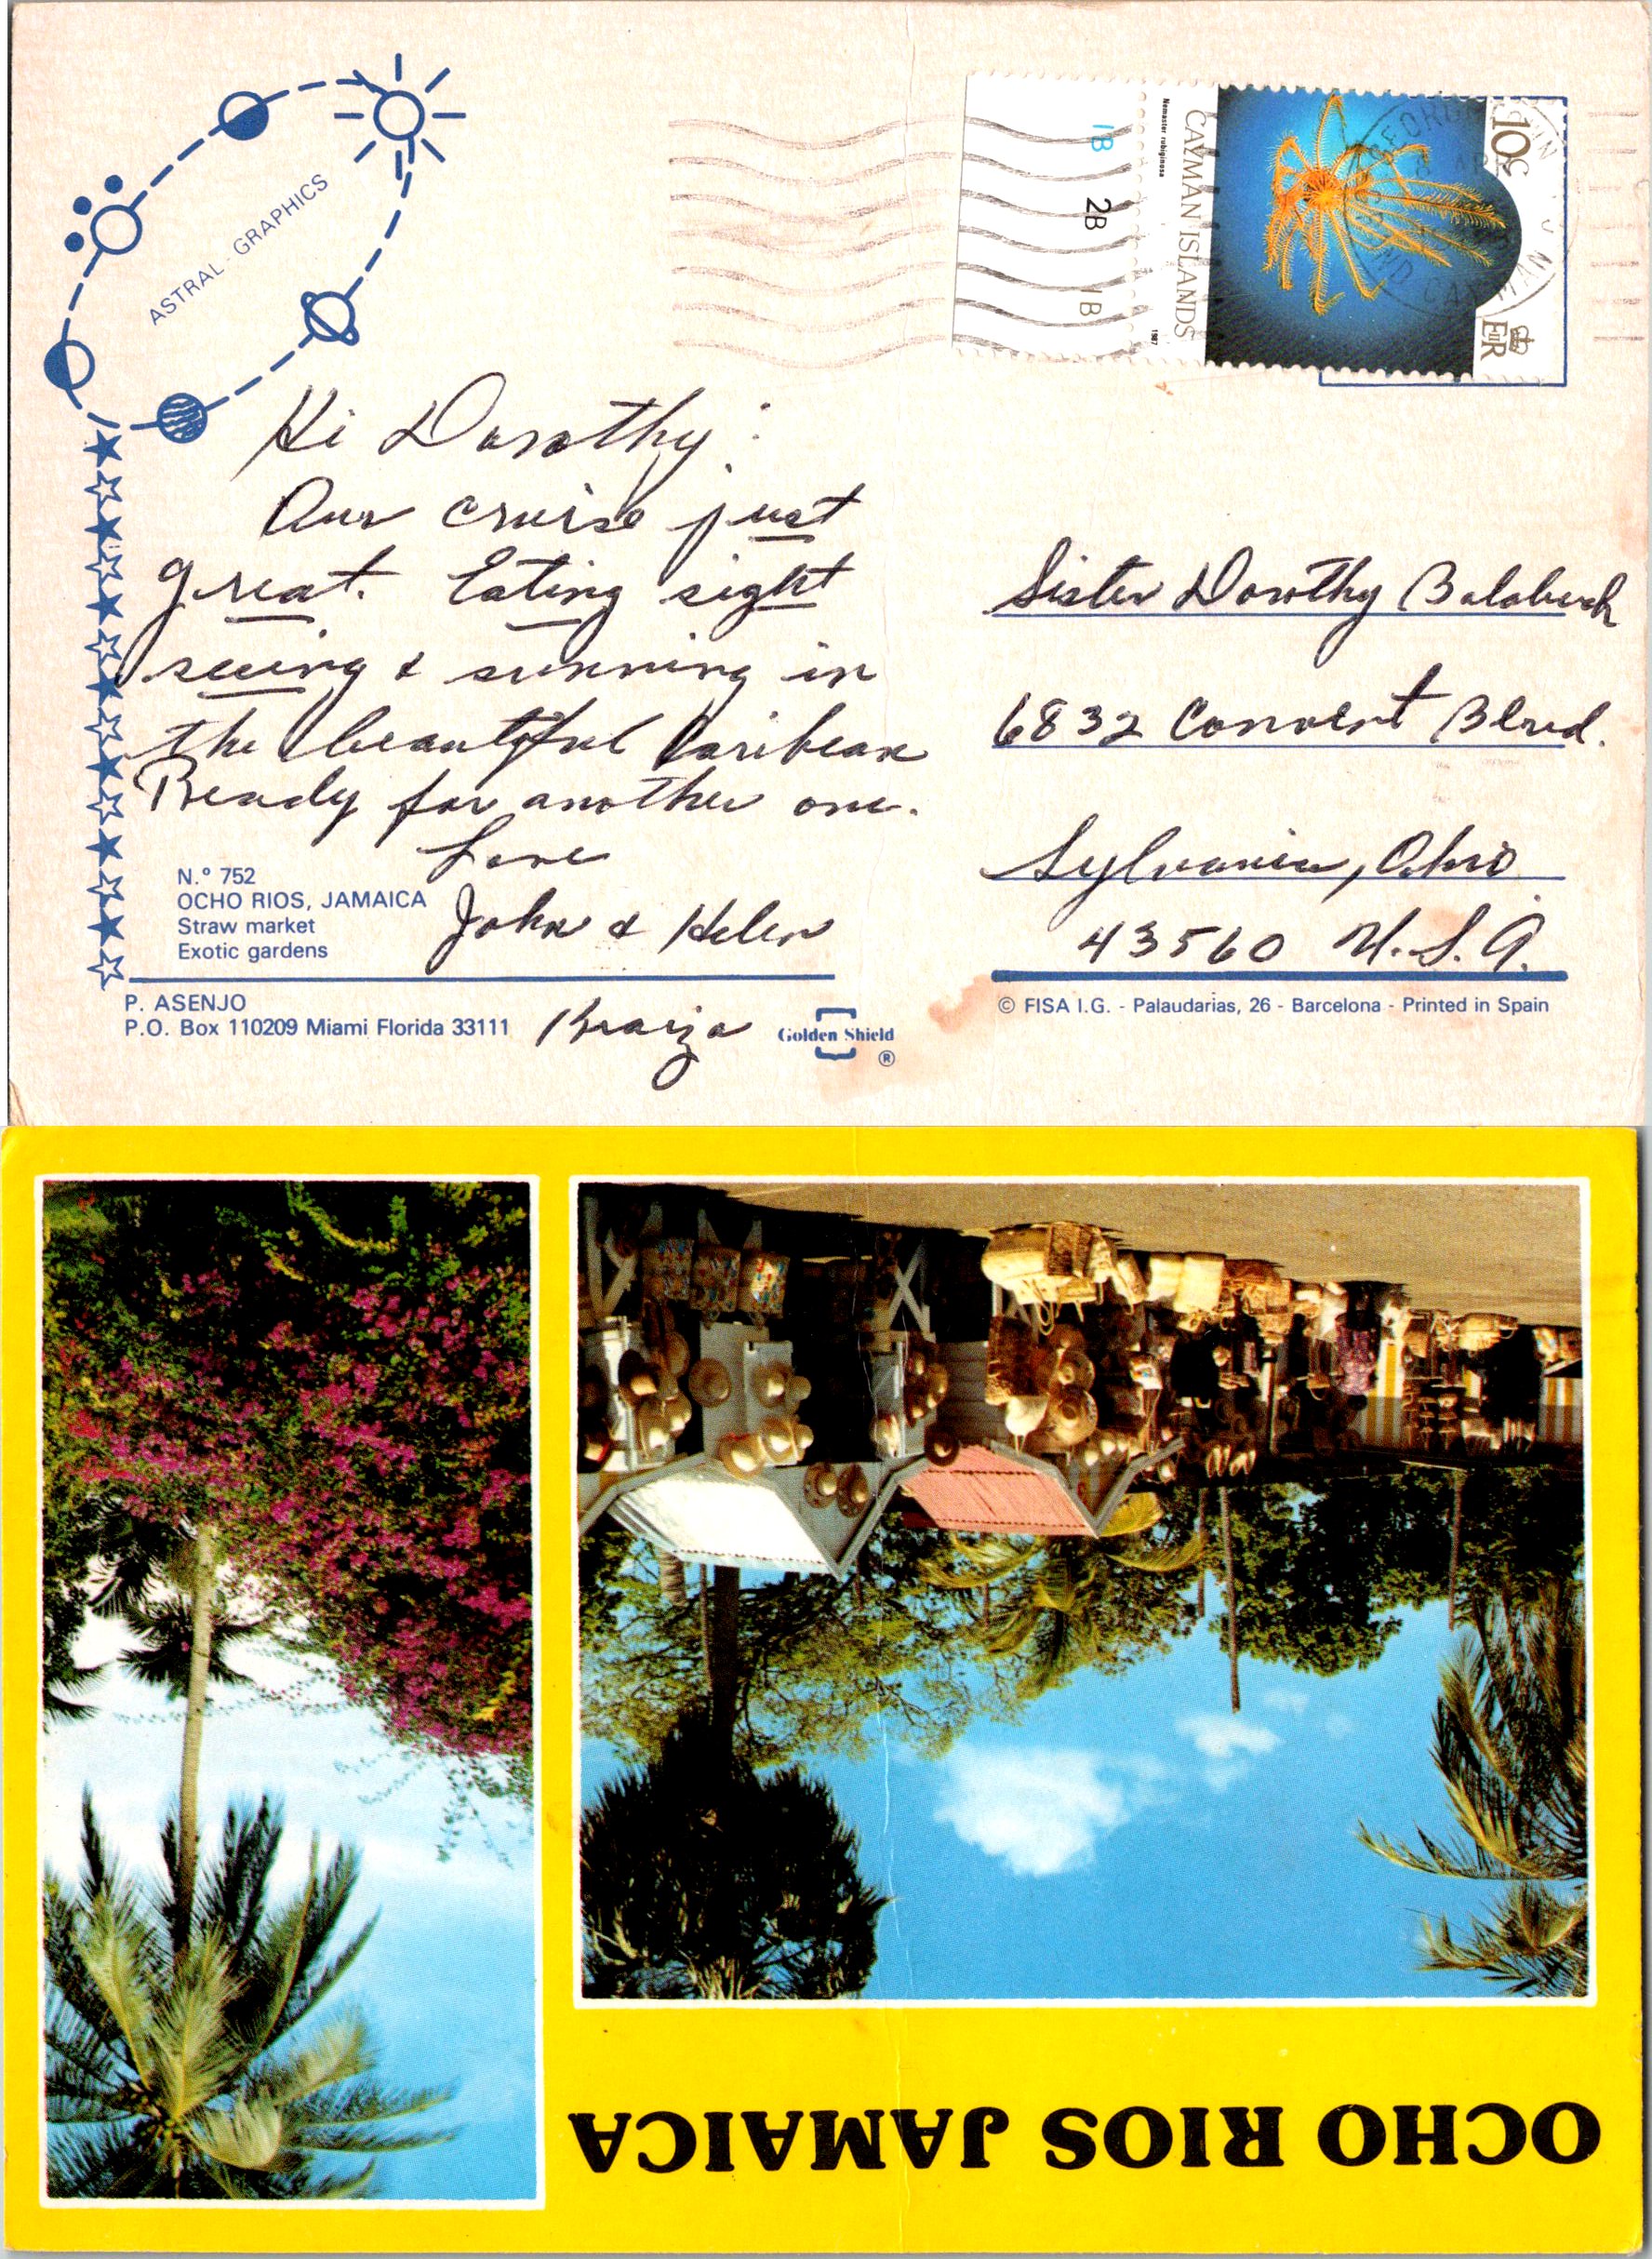 ASTRAL - GRAPHICS
1B 2B 1B
Nemaster rubiginosa
CAYMAN ISLANDS
1987
10c
EIIR
GRAND CAYMAN
Hi Dorothy:
Our cruise just
great. Eating sight
seeing & sunning in
the beautiful Caribean
Ready for another one.
Love
John & Helen
Sister Dorothy
6832 Convent Blvd.
Sylvania, Ohio
43560 U.S.A.
N.º 752
OCHO RIOS, JAMAICA
Straw market
Exotic gardens
P. ASENJO
P.O. Box 110209 Miami Florida 33111
Golden Shield
®
© FISA I.G. - Palaudarias, 26 - Barcelona - Printed in Spain
OCHO RIOS JAMAICA